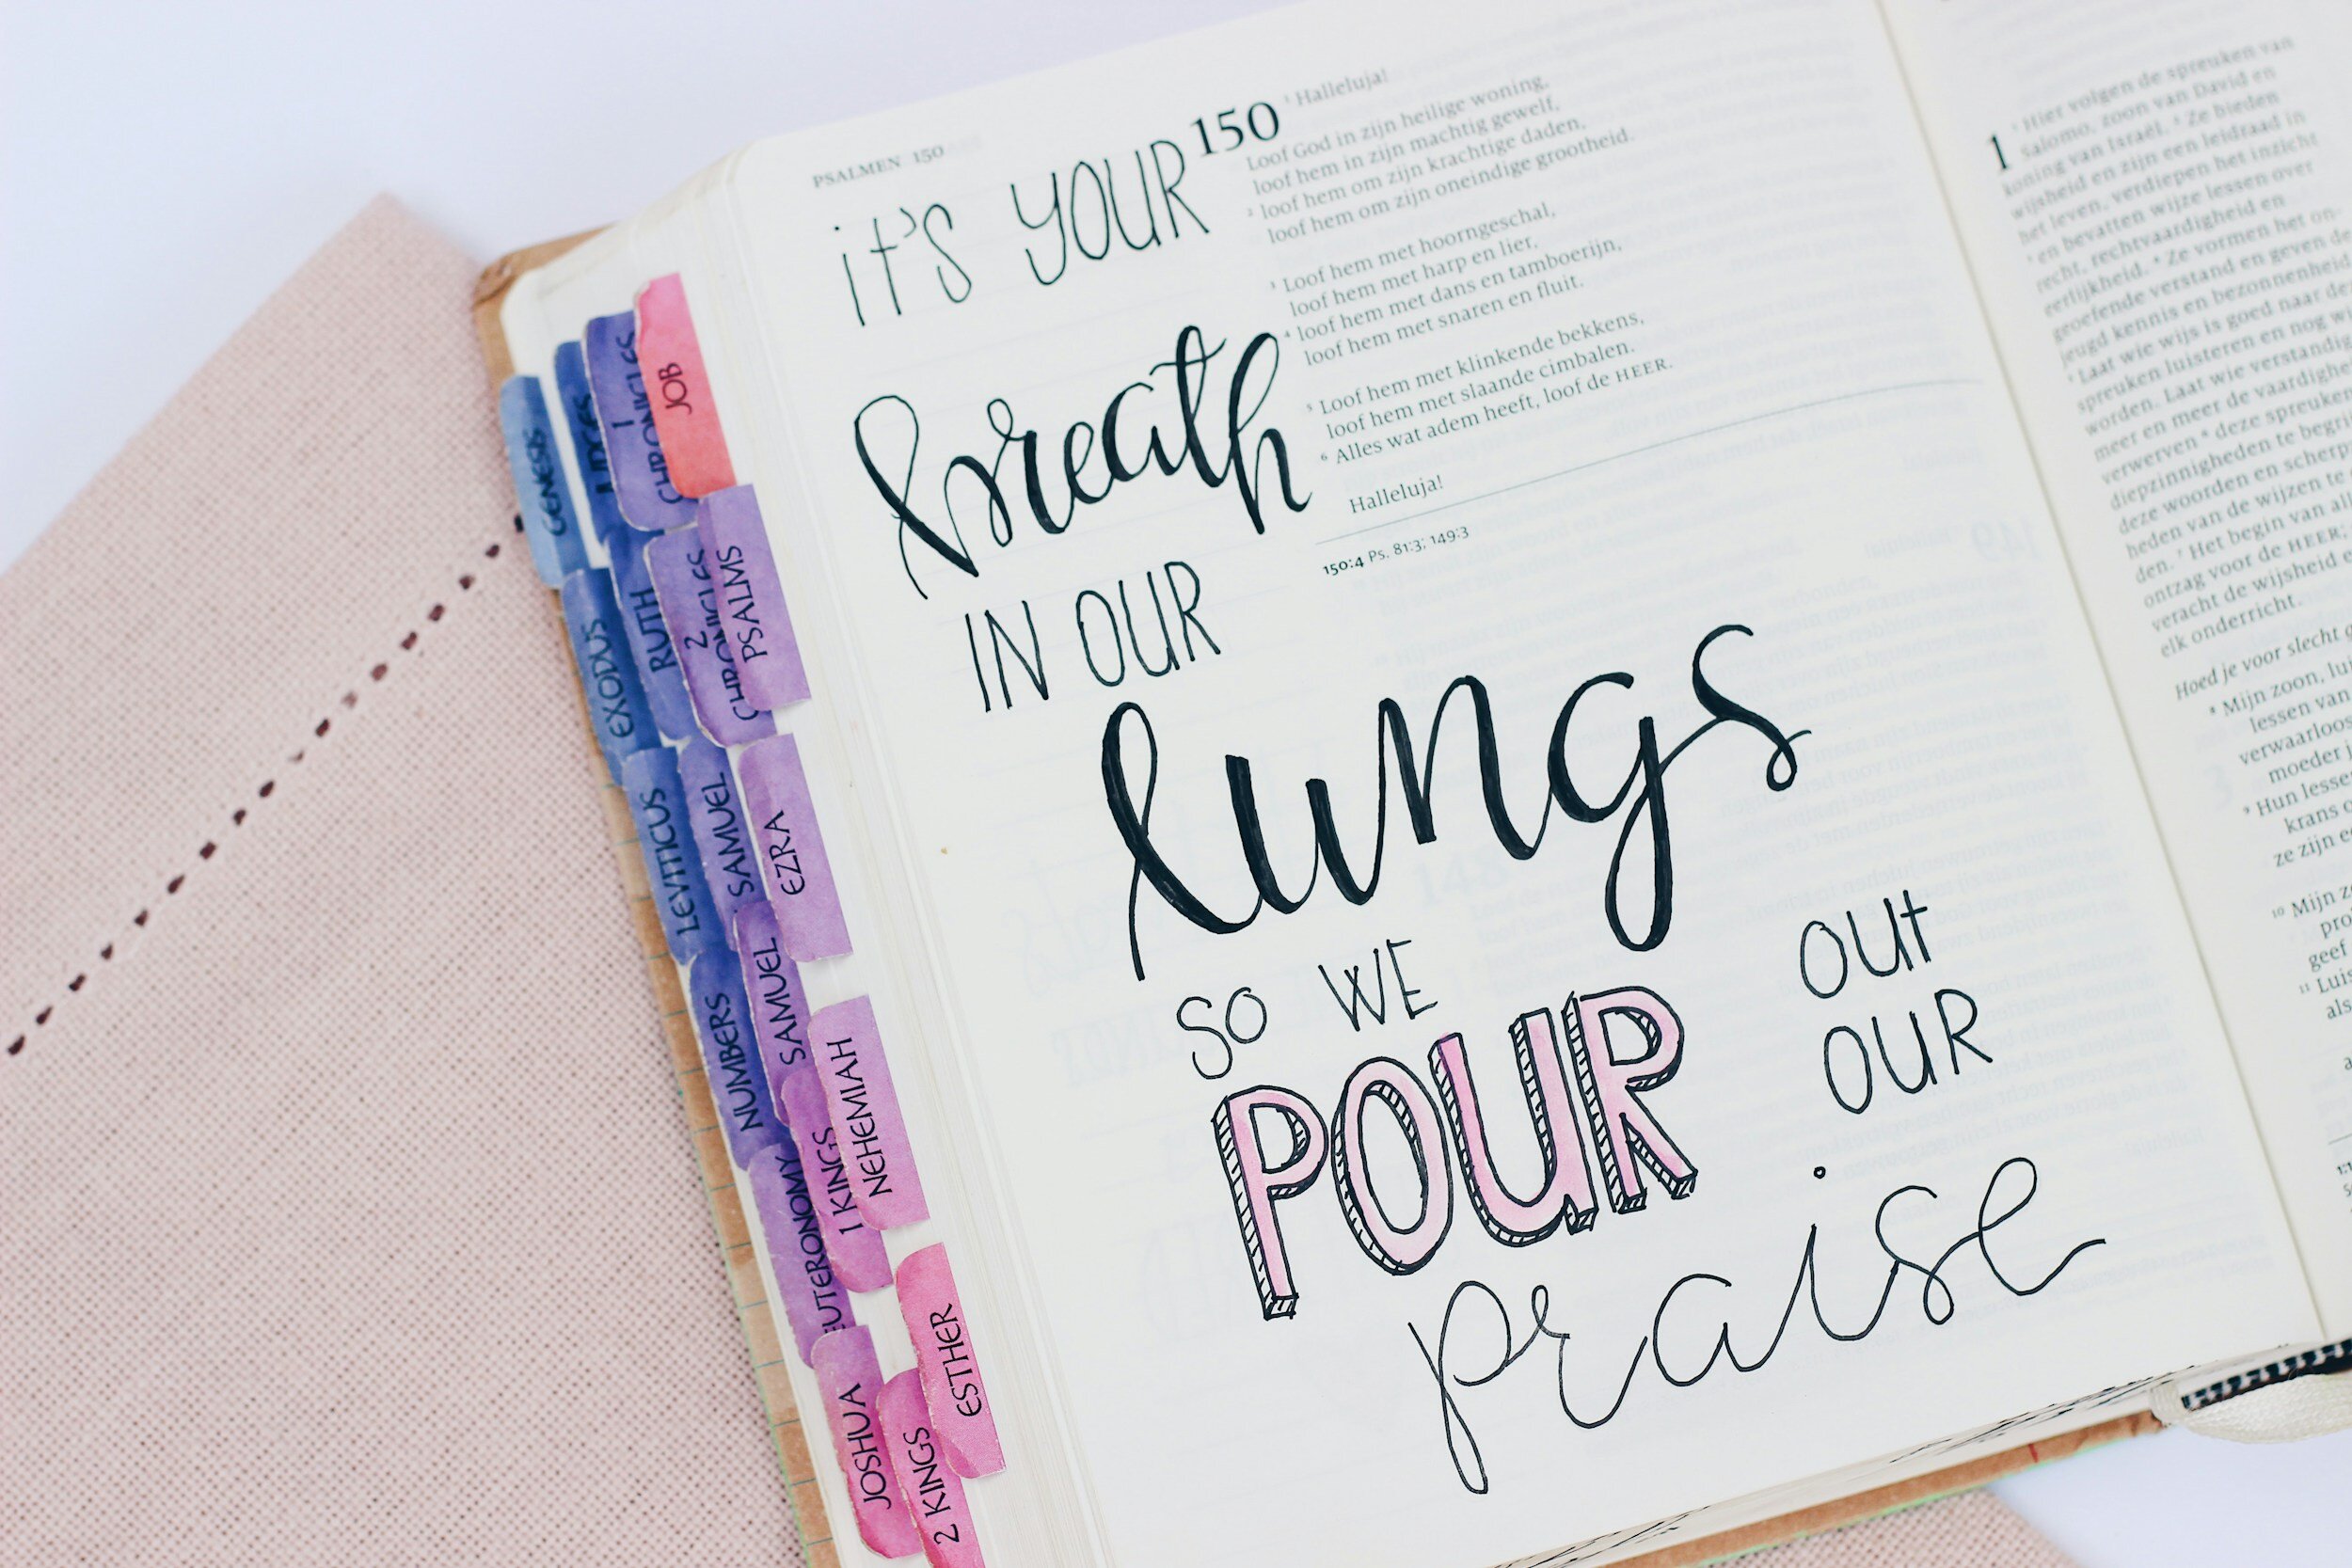 PSALMEN 150
it's YOUR
breath
IN OUR
lungs
SO WE
POUR
OUt
OUR
praise
150
1 Halleluja!
Loof God in zijn heilige woning,
loof hem in zijn machtig gewelf,
2 loof hem om zijn krachtige daden,
loof hem om zijn oneindige grootheid.
3 Loof hem met hoorngeschal,
loof hem met harp en lier,
4 loof hem met dans en tamboerijn,
loof hem met snaren en fluit.
5 Loof hem met klinkende bekkens,
loof hem met slaande cimbalen.
6 Alles wat adem heeft, loof de HEER.
Halleluja!
150:4 Ps. 81:3; 149:3
1
1 Hier volgen de spreuken van
Salomo, zoon van David en
koning van Israël. 2 Ze bieden
wijsheid en zijn een leidraad in
het leven, verdiepen het inzicht
3 en bevatten wijze lessen over
recht, rechtvaardigheid en
eerlijkheid. 4 Ze vormen het on-
geoefende verstand en geven de
jeugd kennis en bezonnenheid
5 Laat wie wijs is goed naar de
spreuken luisteren en nog
worden. Laat wie verstandig
meer en meer de vaardighe
verwerven 6 deze spreuken
diepzinnigheden te begri
deze woorden en scherp
heden van de wijzen te
den. 7 Het begin van al
ontzag voor de HEER.
veracht de wijsheid e
elk onderricht.
Hoed je voor slecht
8 Mijn zoon, lui
lessen van
verwaarloos
moeder
9 Hun lesse
krans
ze zijn
10 Mijn z
geef
11 Luis
als
GENESIS
EXODUS
LEVITICUS
NUMBERS
EUTERONOMY
JOSHUA
JUDGES
RUTH
SAMUEL
SAMUEL
1 KINGS
2 KINGS
1 CHRONICLES
2 CHRONICLES
EZRA
NEHEMIAH
ESTHER
JOB
PSALMS